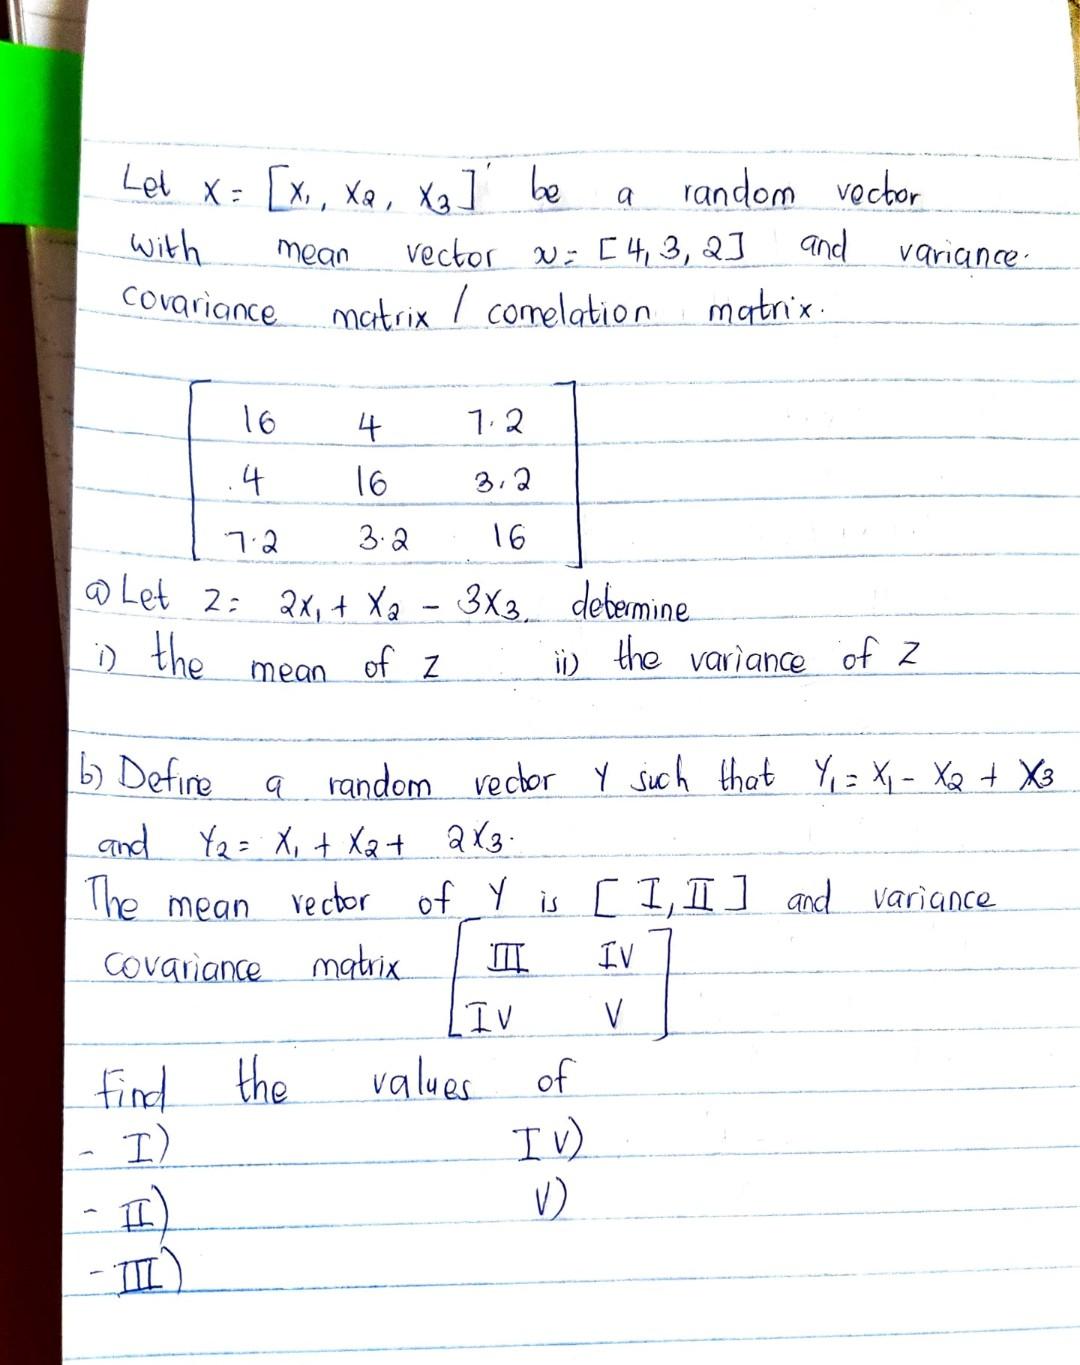 Let X = [X₁, X₂, X₃]' be a random vector
with mean vector u = [4, 3, 2] and variance.
covariance matrix / correlation matrix.
16 4 7.2
4 16 3.2
7.2 3.2 16
a) Let Z = 2X₁ + X₂ - 3X₃. determine
i) the mean of Z ii) the variance of Z
b) Define a random vector Y such that Y₁ = X₁ - X₂ + X₃
and Y₂ = X₁ + X₂ + 2X₃.
The mean vector of Y is [I, II] and variance
covariance matrix [III IV
IV V]
find the values of
- I) IV)
- II) V)
- III)